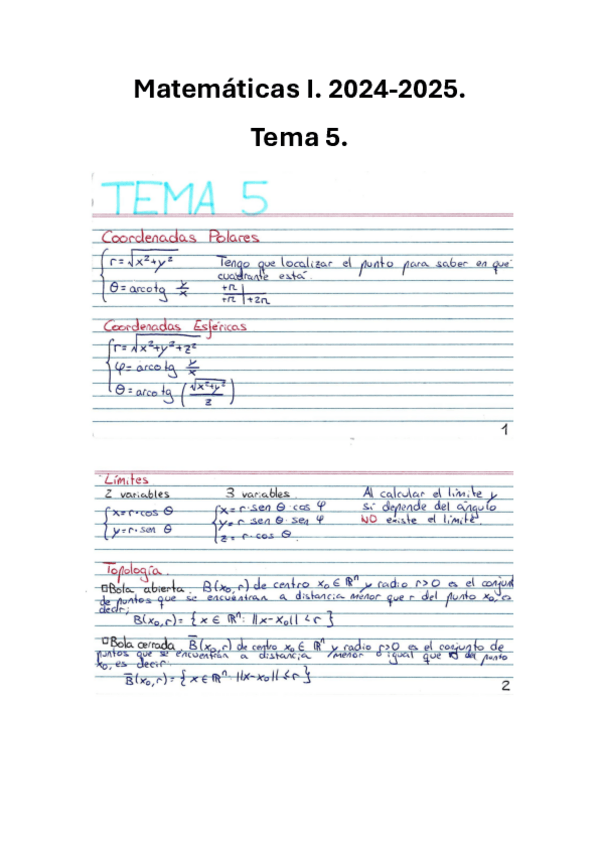 Matemáticas I. 2024-2025.
Tema 5.
TEMA 5
Coordenadas Polares
r = √x²+y² Tengo que localizar el punto para saber en que
cuadrante está.
θ = arcotg y/x +π
+π | +2π
Coordenadas Esféricas
r = √x²+y²+z²
φ = arcotg y/x
θ = arcotg (√x²+y²/z)
1
Límites
2 variables 3 variables Al calcular el límite y
x = r·cos θ x = r·sen θ·cos φ si depende del ángulo
y = r·sen θ y = r sen θ·sen φ NO existe el límite.
z = r·cos θ
Topología.
Bola abierta. B(x₀,r) de centro x₀ ∈ ℝⁿ y radio r>0 es el conjunt
de puntos que se encuentran a distancia menor que r del punto x₀, es
decir;
B(x₀,r) = { x ∈ ℝⁿ: ||x-x₀|| < r }
Bola cerrada B̅(x₀,r) de centro x₀ ∈ ℝⁿ y radio r>0 es el conjunto de
puntos que se encuentran a distancia menor o igual que del punto
x₀, es decir:
B̅(x₀,r) = { x ∈ ℝⁿ: ||x-x₀|| ≤ r }
2